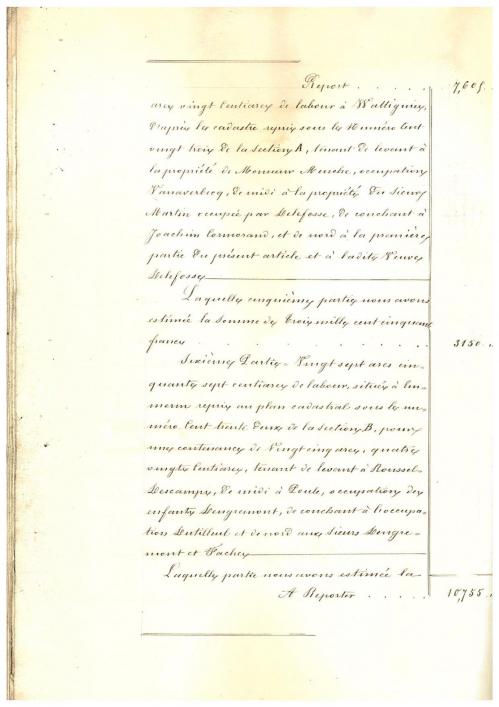 Report . . . . . 7,605.
ares vingt Centiares de labour à Wattignies,
d'après le cadastre repris sous le Numéro Cent
vingt trois de la section A, tenant de levant à
la propriété de Monsieur Menche, occupation
Vanaverbecq, de midi à la propriété du Sieur
Martin occupée par Delefosse, de couchant à
Joachim Cormorand, et de nord à la première
partie du présent article et à ladite Veuve
Delefosse
Laquelle cinquième partie nous avons
estimée la somme de Trois mille cent cinquante
francs . . . . . . . 3150
Sixième Partie = Vingt sept ares cin-
quante sept centiares de labour, situés à Em-
merin repris au plan cadastral sous le nu-
méro Cent trente deux de la section B, pour
une contenance de Vingt cinq ares, quatre
vingts Centiares, tenant de levant à Roussel-
Descamps, de midi à Poule, occupation des
enfants Dengremont, de couchant à l'occupa-
tion Dutilleul et de nord aux sieurs Dengre-
mont et Vache
Laquelle partie nous avons estimée la
A Reporter . . . . . 10,755